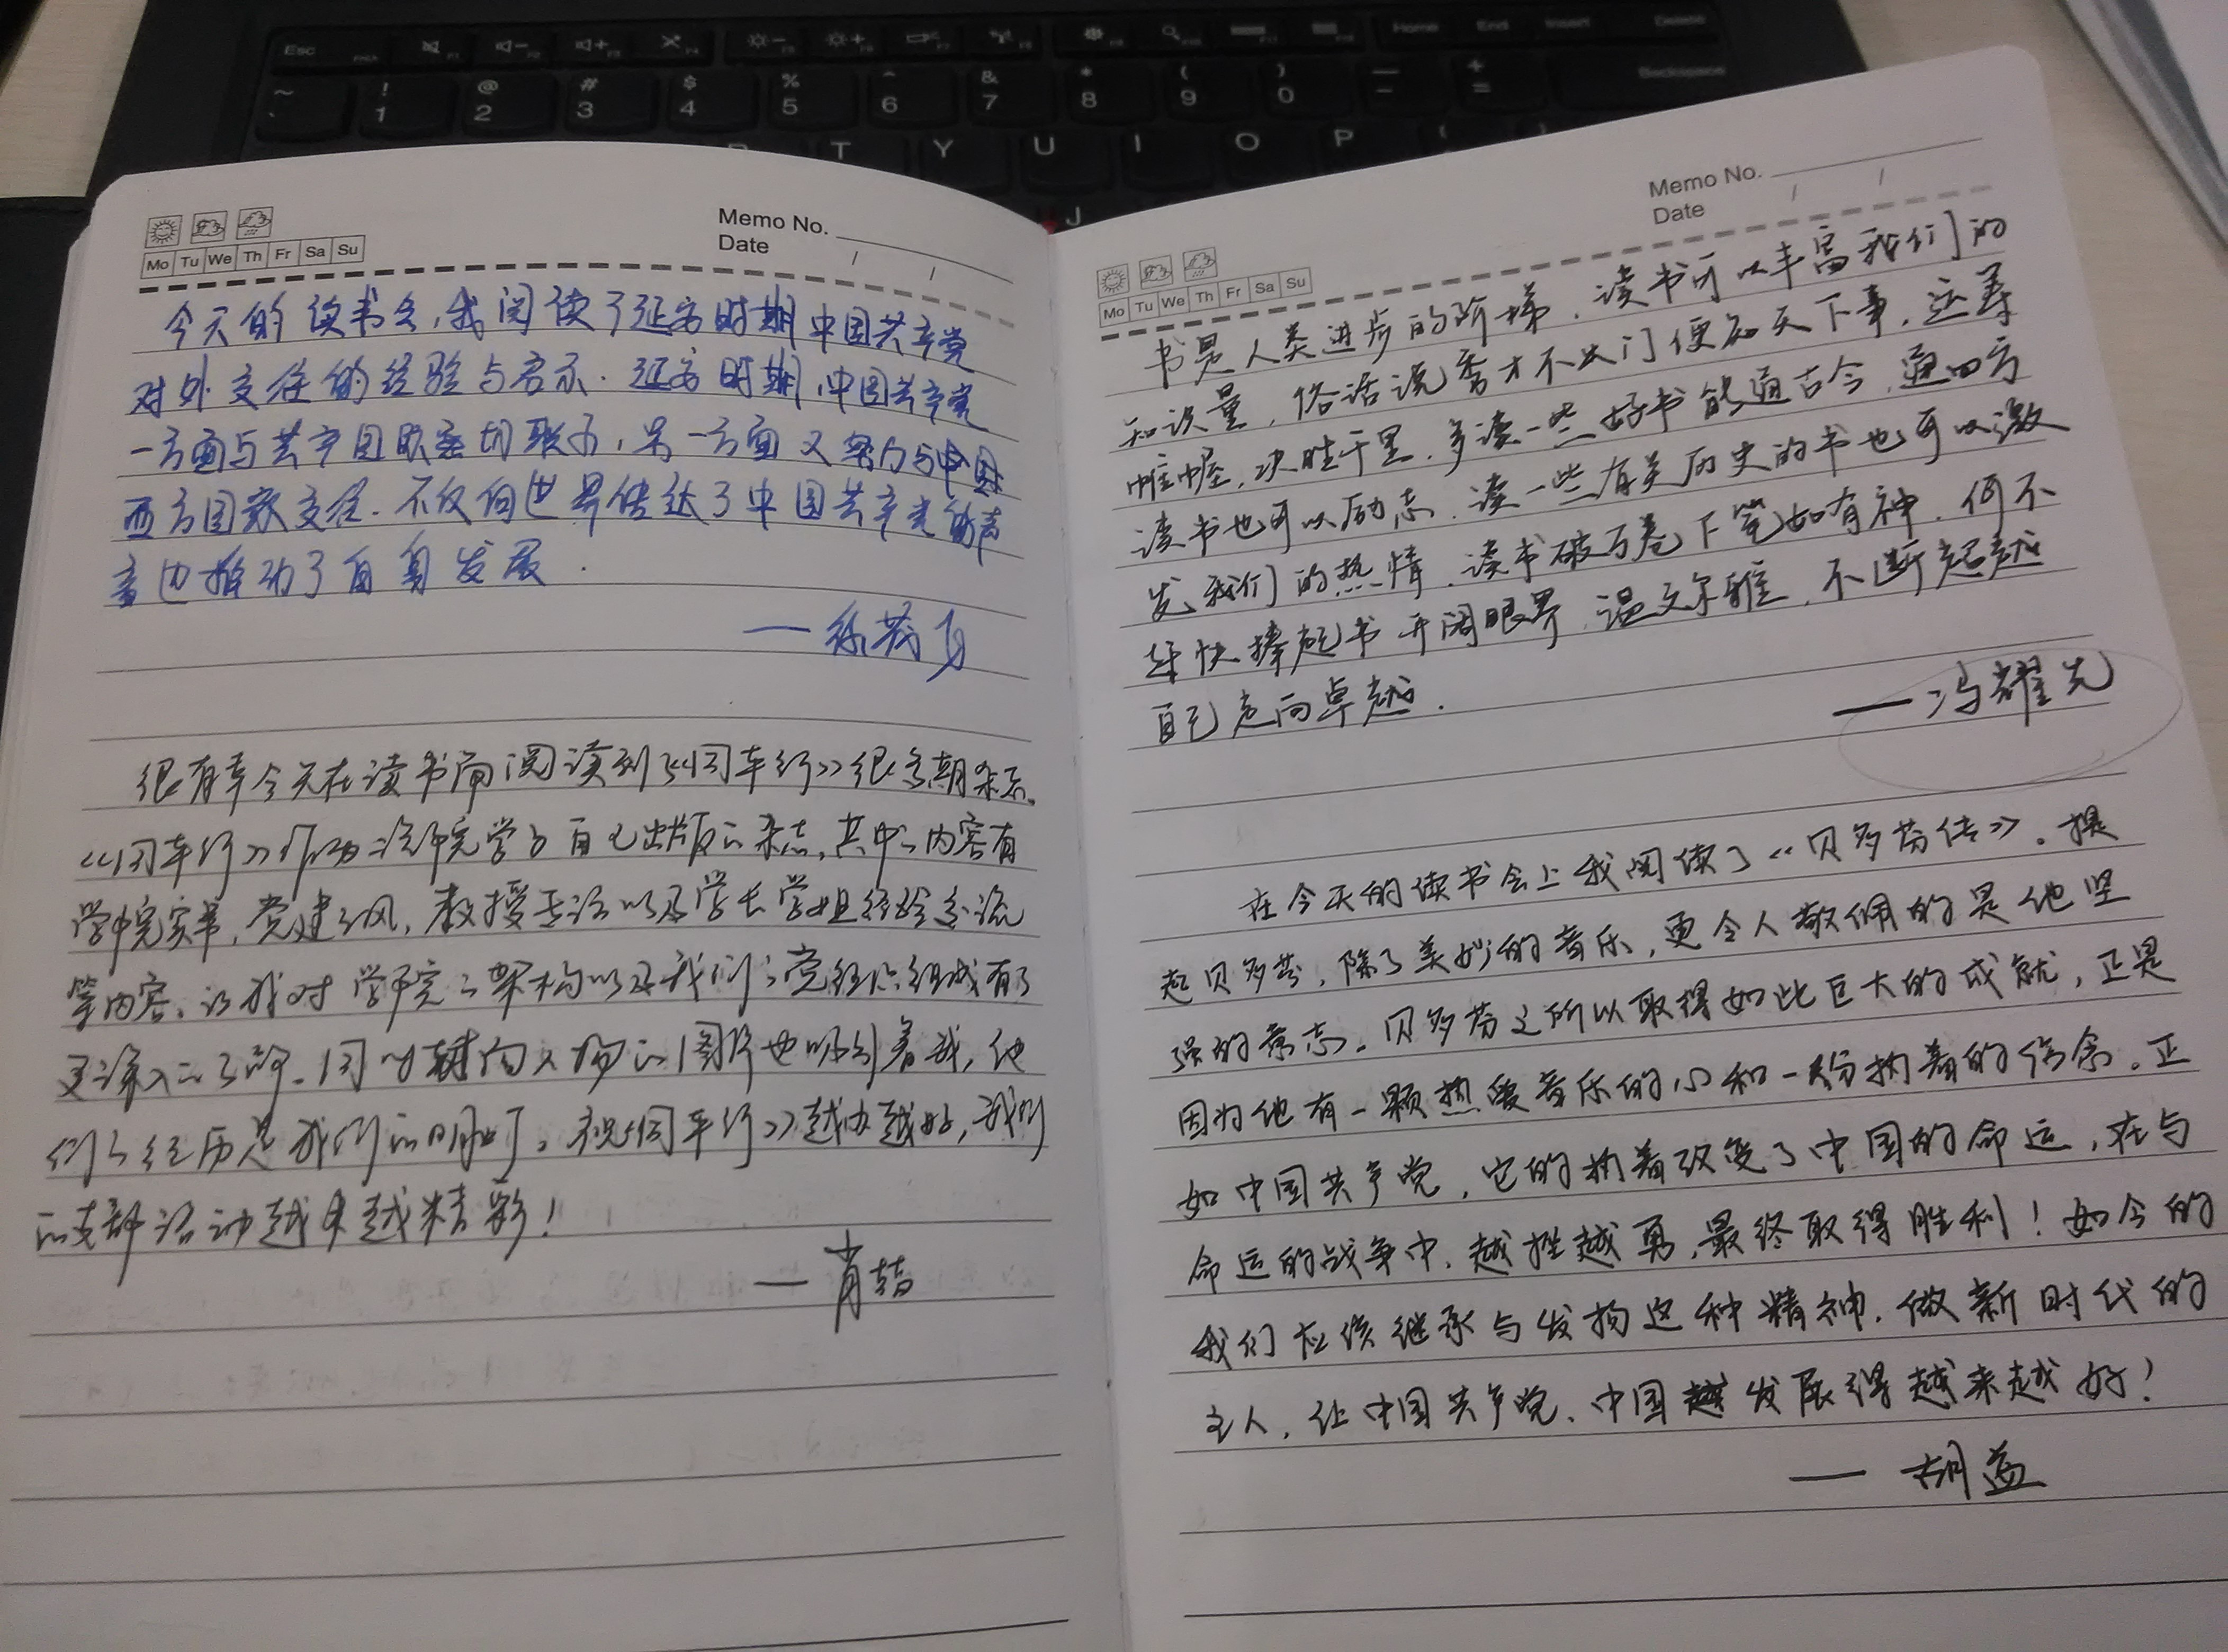 Esc F1 F5 F6 F7 F8 Home End Insert Delete
~ ! @ # $ % ^ & * ( ) — +
1 2 3 4 5 6 7 8 9 0 - = Backspace
T Y U I O P
J
Memo No.
Date / /
Mo Tu We Th Fr Sa Su
今天的读书会,我阅读了延安时期中国共产党
对外交往的经验与启示. 延安时期,中国共产党
一方面与共产国际密切联系,另一方面又努力与中国
西方国家交往. 不仅向世界传达了中国共产党的声
音也推动了自身发展.
——徐茂
很有幸今天在读书角阅读到《同车行》很多期杂志。
《同车行》作为汽院学子自己出版的杂志,其中的内容有
学院实事,党建之风,教授专访以及学长学姐经验交流
等内容,让我对学院的架构以及我们的党组织组成有了
更深入的了解。同时封面人物的图片也吸引着我,他
们的经历是我们的明灯。祝《同车行》越办越好,我们
的支部活动越来越精彩!
——肖喆
Memo No.
Date / /
Mo Tu We Th Fr Sa Su
书是人类进步的阶梯,读书可以丰富我们的
知识量,俗话说秀才不出门便知天下事,运筹
帷幄,决胜千里.多读一些好书能通古今,通四方
读书也可以励志,读一些有关历史的书也可以激
发我们的热情,读书破万卷下笔如有神,何不
赶快捧起书开阔眼界,温文尔雅,不断超越
自己走向卓越.
——冯耀先
在今天的读书会上我阅读了《贝多芬传》。提
起贝多芬,除了美妙的音乐,更令人敬佩的是他坚
强的意志。贝多芬之所以取得如此巨大的成就,正是
因为他有一颗热爱音乐的心和一份执着的信念。正
如中国共产党,它的执着改变了中国的命运,在与
命运的战争中,越挫越勇,最终取得胜利!如今的
我们应该继承与发扬这种精神,做新时代的
主人,让中国共产党、中国越发展得越来越好!
——胡益